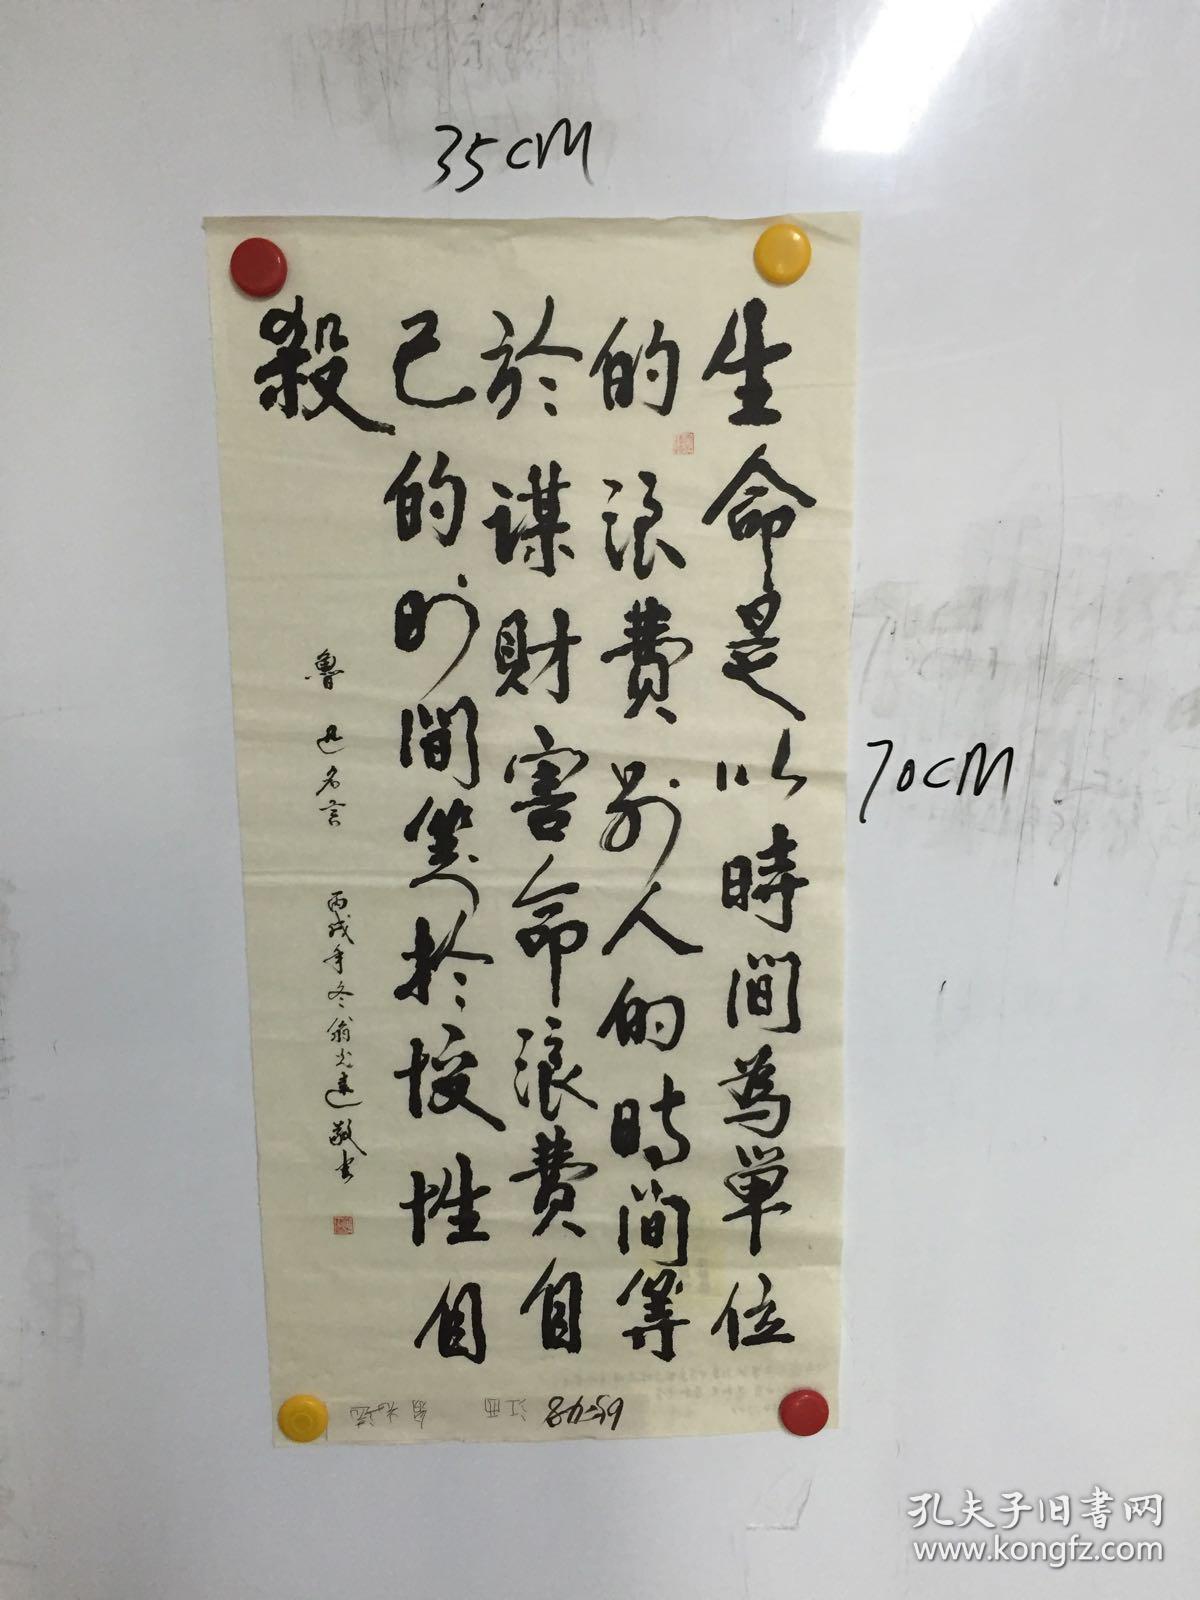 35cM
70cM
生命是以時間為單位
的浪費别人的時間等
於謀財害命浪費自
己的时間等於慢性自
殺
魯迅名言 丙戌年冬翁光達敬书
江西
孔夫子旧书网
www.kongfz.com